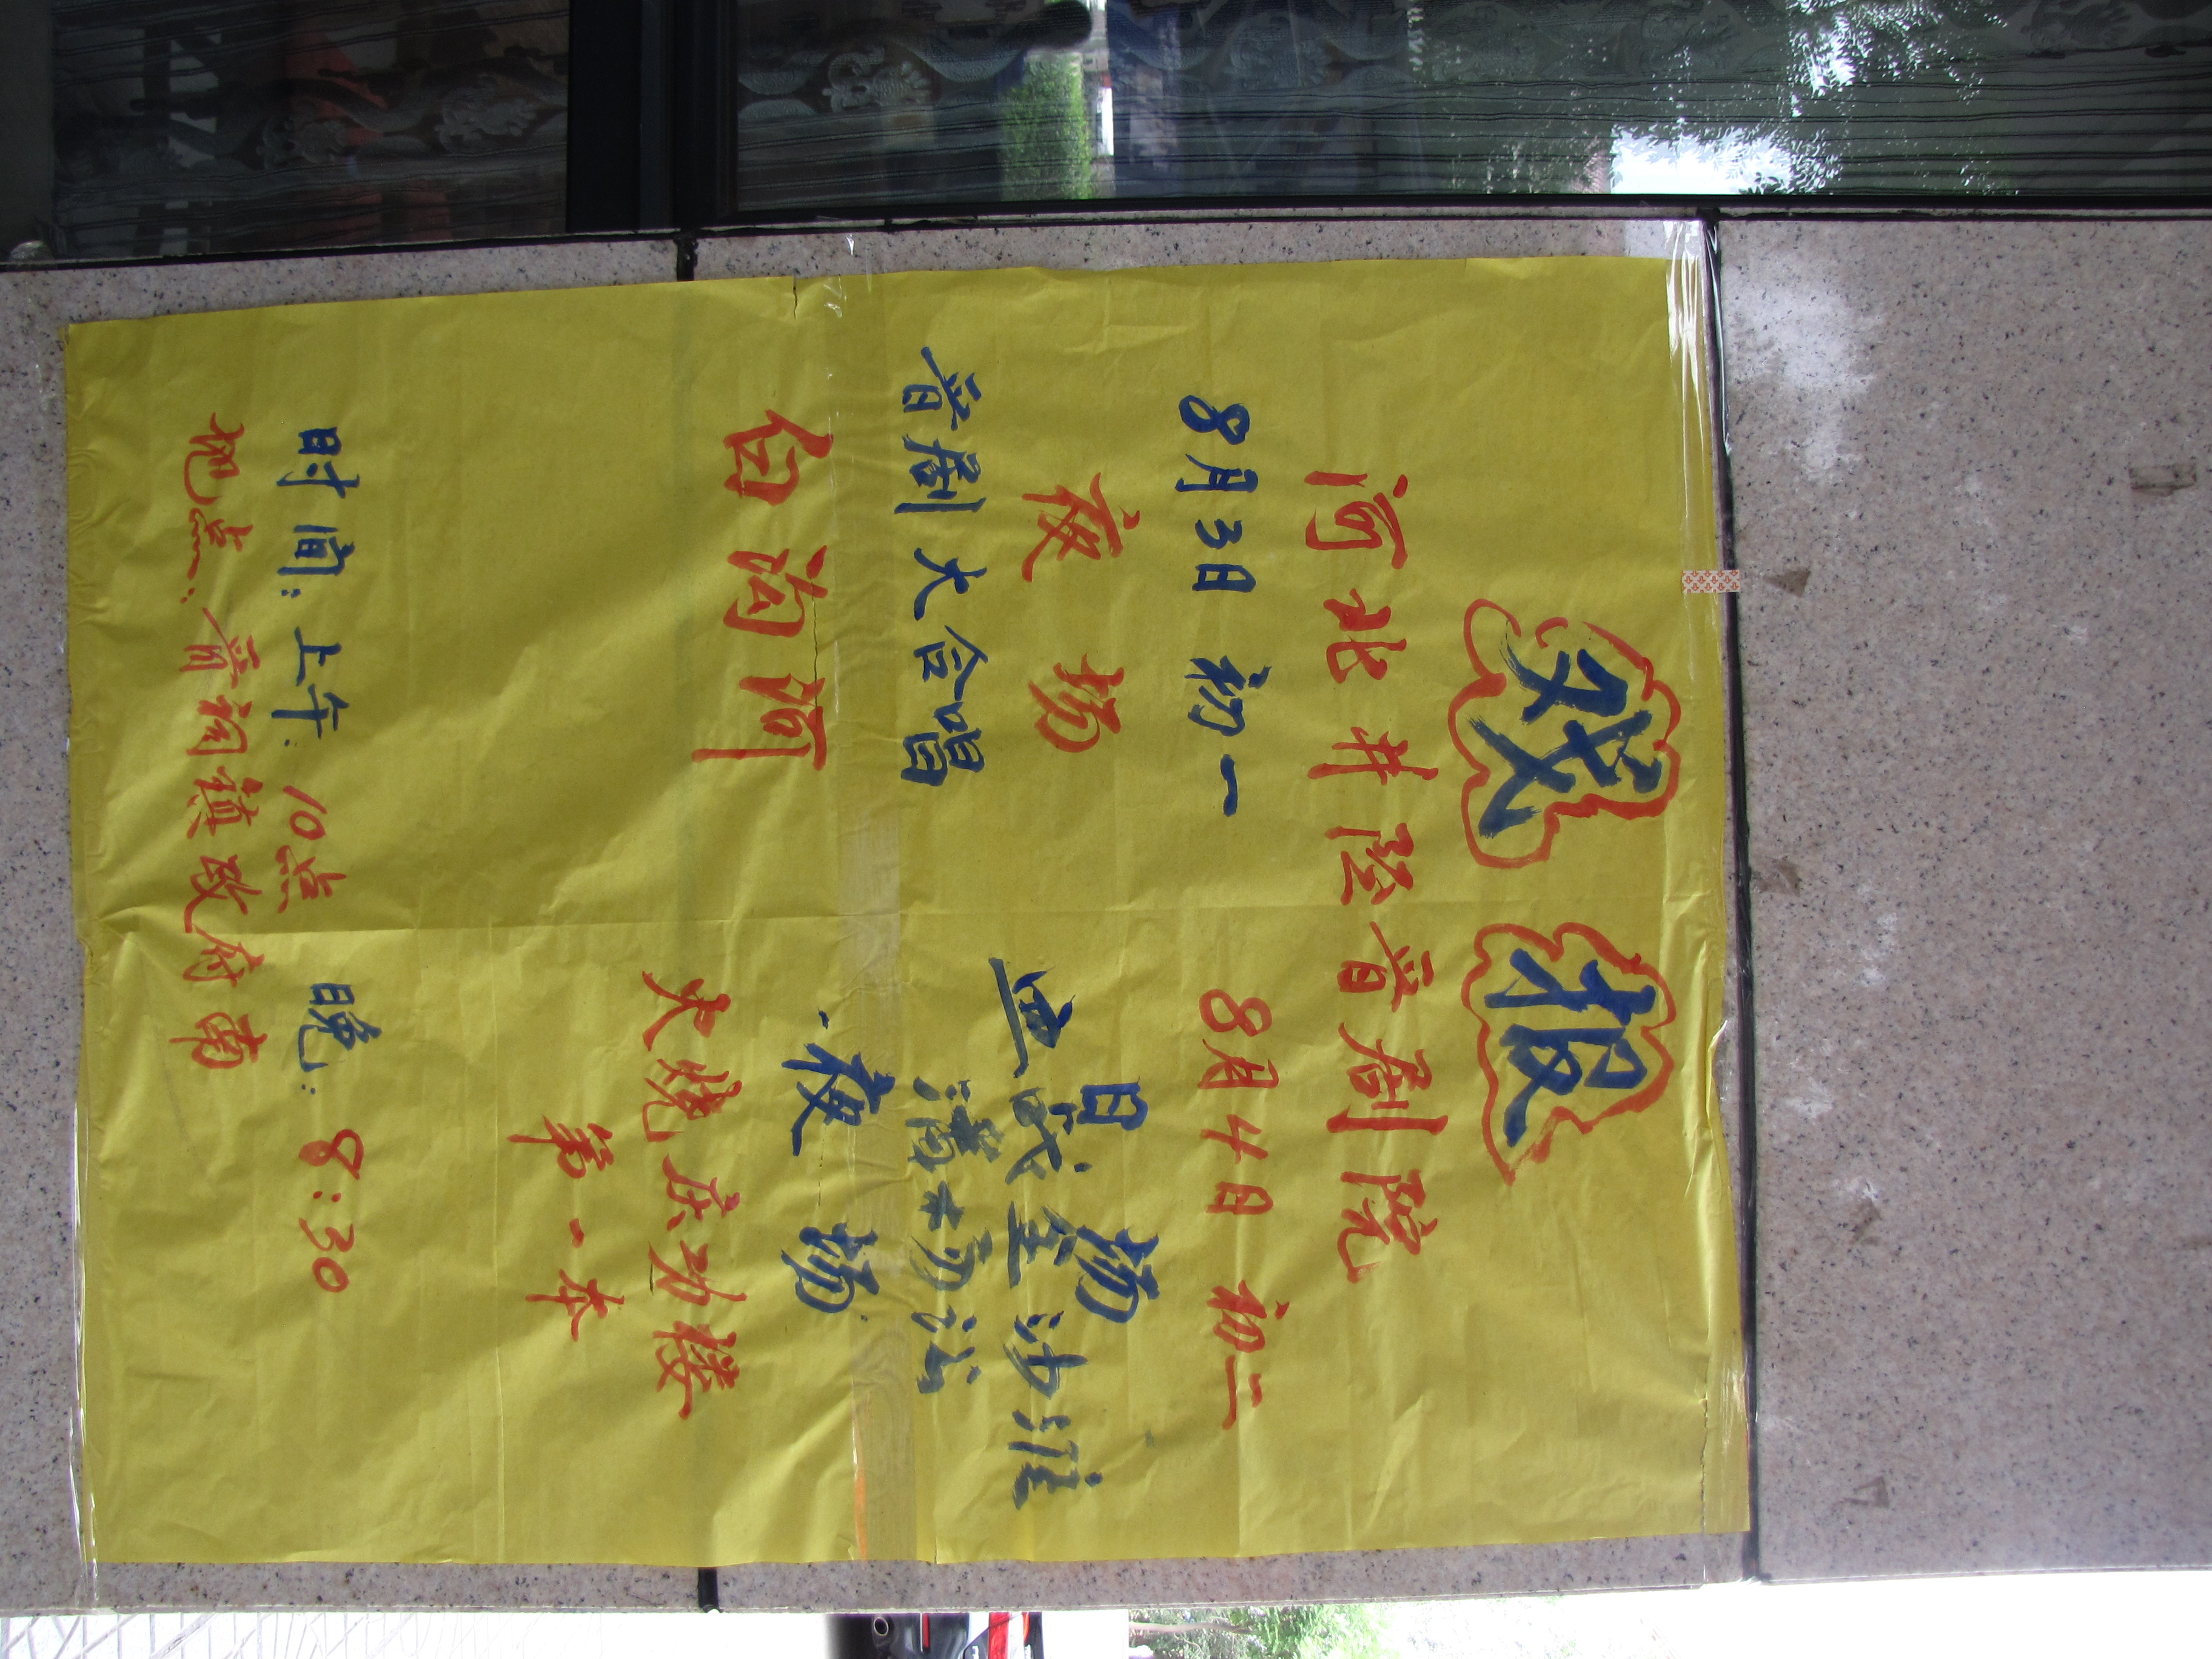 戏报
河北井陉晋剧院
8月3日 初一
夜场
晋剧大合唱
白沟河
8月4日 初二
日场
血战金沙滩
夜场
火烧庆功楼
第一本
时间:上午:10点 晚:8:30
地点:晋祠镇政府南